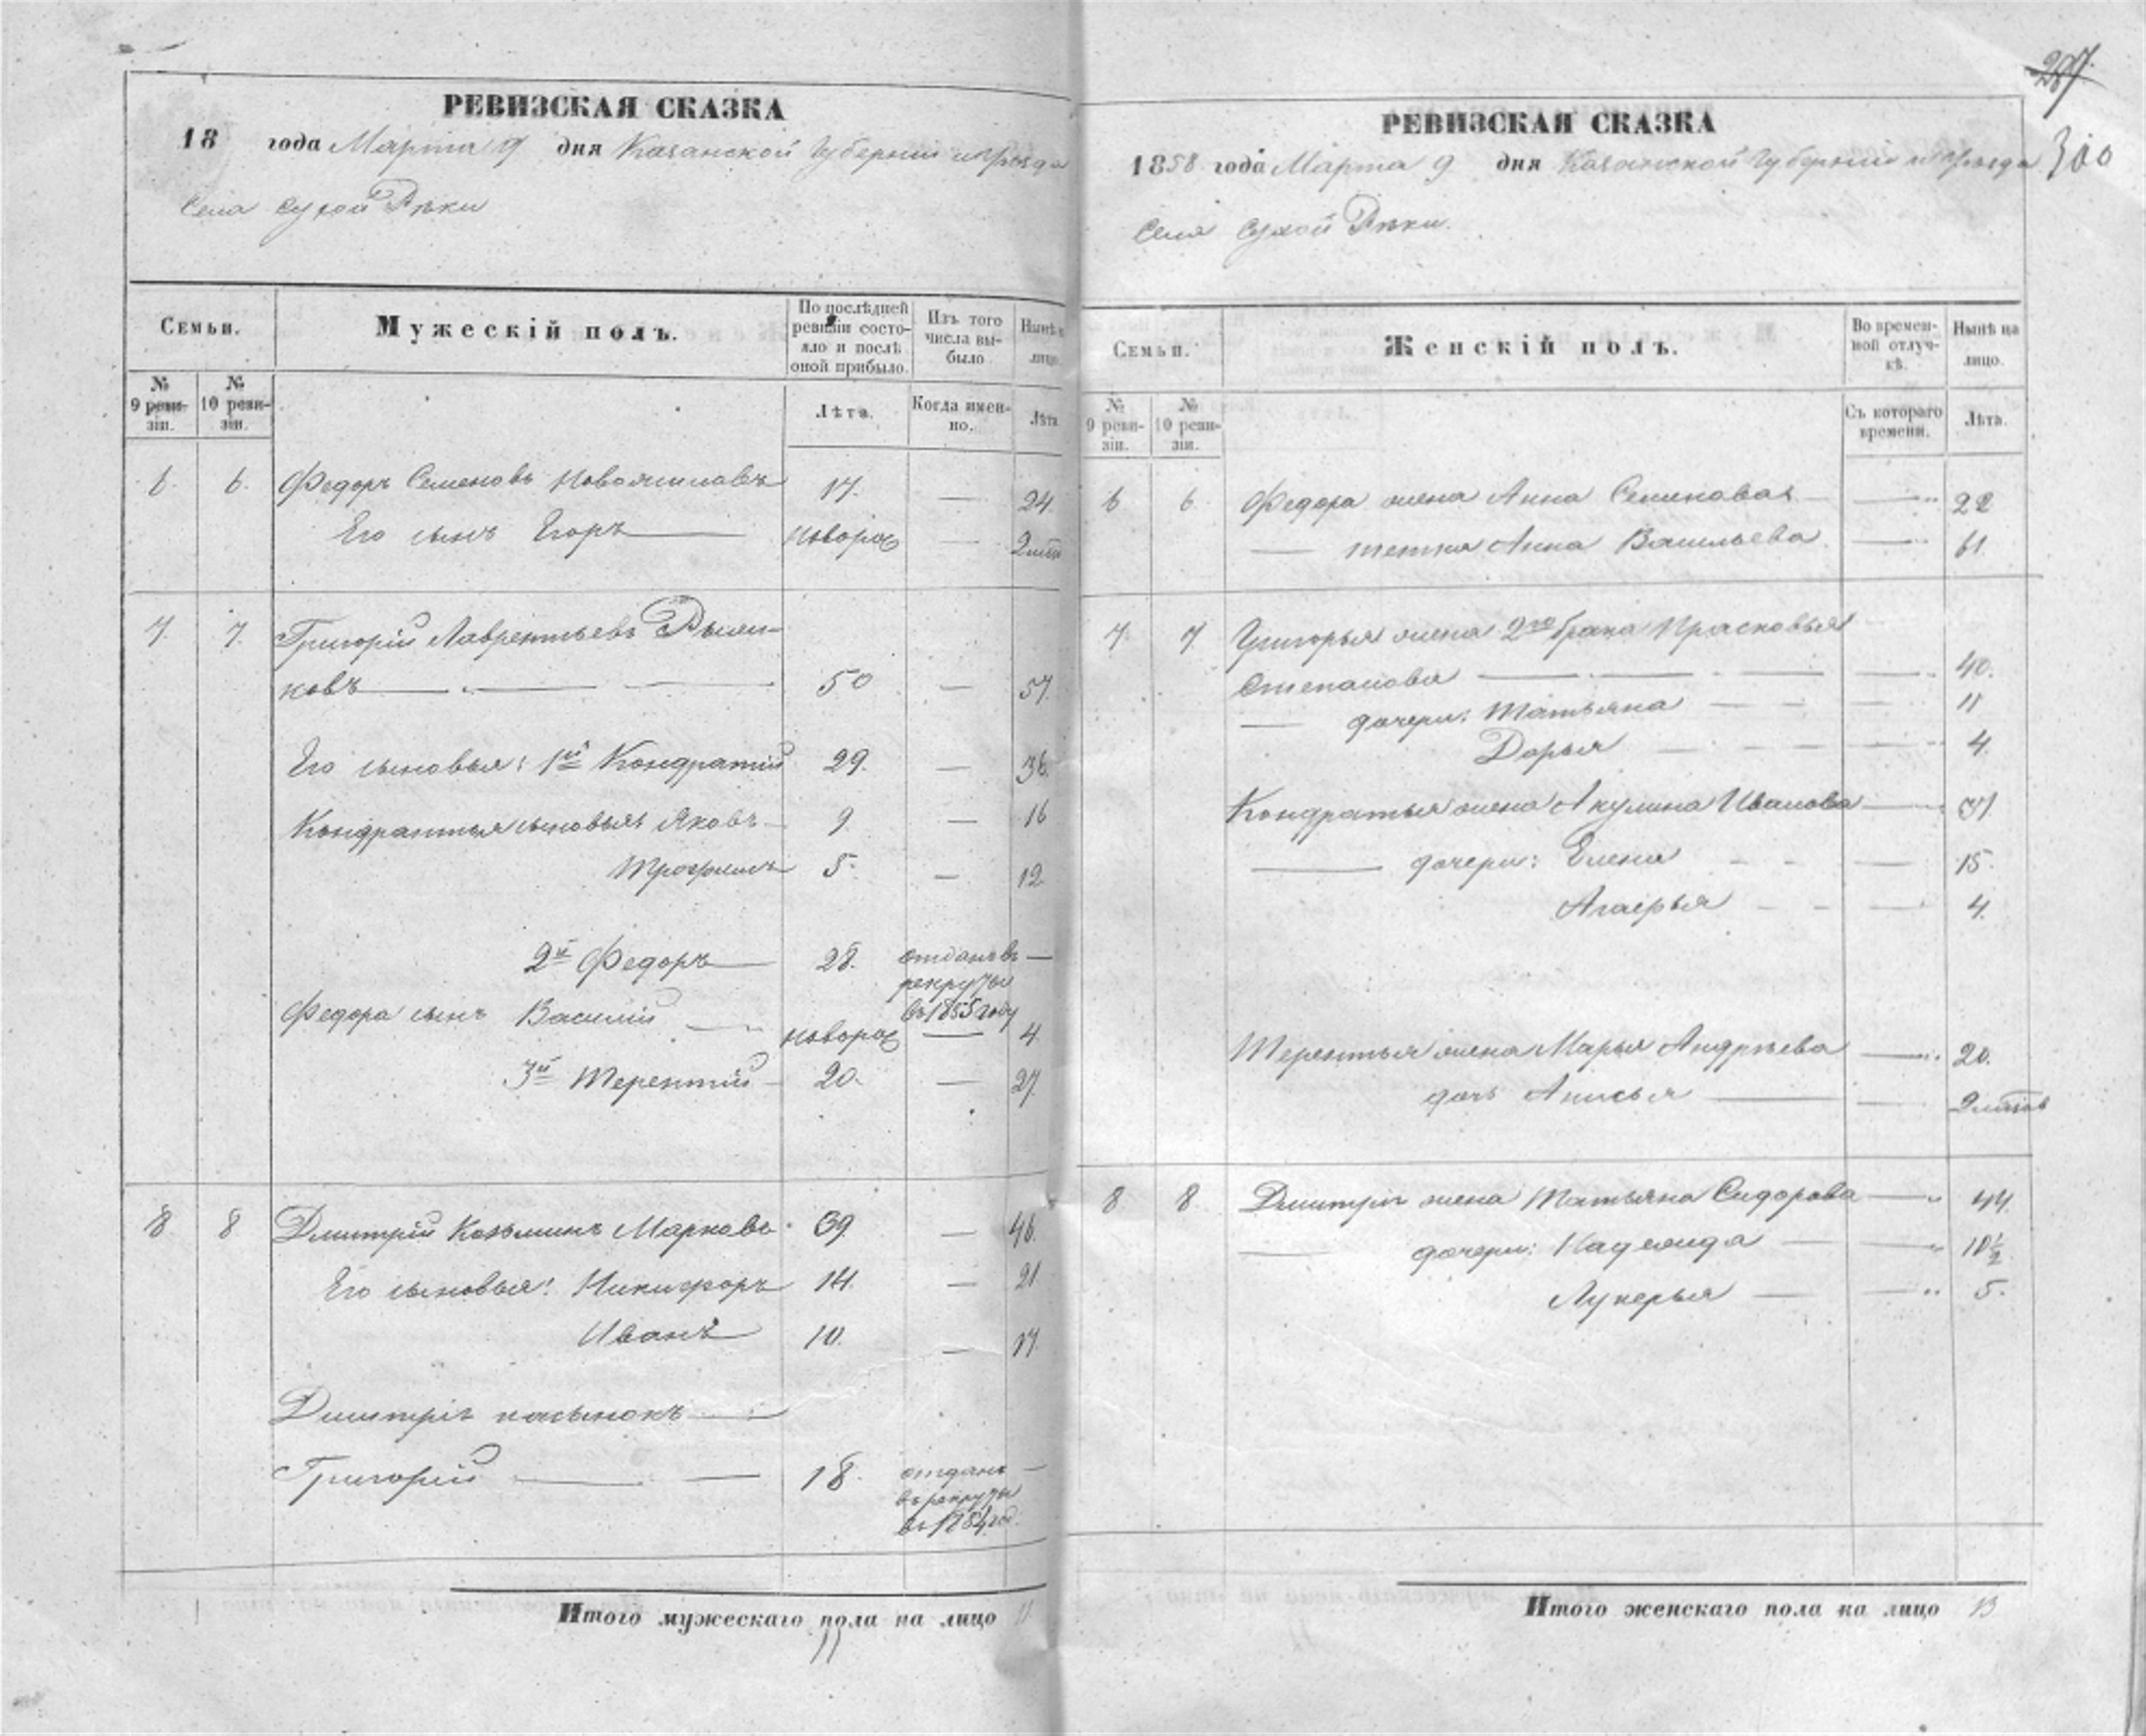 РЕВИЗСКАЯ СКАЗКА
18 года Марта 9 дня Казанской Губернии и уѣзда
Села Сухой Рѣки
Семьи.
Мужескій полъ.
По послѣдней ревизіи состояло и послѣ оной прибыло.
Изъ того числа выбыло
Нынѣ на лицо.
№ 9 ревизіи.
№ 10 ревизіи.
Лѣта.
Когда именно.
Лѣта
6. 6. Федоръ Семеновъ 17. — 24.
Его сынъ Егоръ новорож —
7. 7. Григорій Лаврентьевъ
ковъ 50 — 57.
Его сыновья: 1й Кондратій 29. — 36.
Кондратья сыновья: Яковъ 9 — 16
Трофимъ 5. — 12
2й Федоръ 28. отданъ въ —
рекруты
въ 1855 году
Федора сынъ Василій новорож — 4
3й Терентій 20. — 27.
8 8 Дмитрій Козьминъ Марковъ 39. — 46.
Его сыновья: Никифоръ 14. — 21
Иванъ 10. — 17.
Дмитрія пасынокъ
Григорій 18. отданъ —
въ рекруты
въ 1854 год.
Итого мужескаго пола на лицо 11
11
287.
300
РЕВИЗСКАЯ СКАЗКА
1858 года Марта 9 дня Казанской Губерніи и уѣзда
Села Сухой Рѣки.
Семьи.
Женскій полъ.
Во временной отлучкѣ.
Нынѣ на лицо.
№ 9 ревизіи.
№ 10 ревизіи.
Съ котораго времени.
Лѣта.
6 6 Федора жена Анна Семенова — 22
— тетка Анна Васильева — 61
7. 7. Григорья жена 2го брака Прасковья
Степанова — 40.
— дочери: Татьяна — 11
Дарья — 4.
Кондратья жена Акулина Иванова — 37.
— дочери: Елена — 15.
— 4.
Терентья жена Марья Андрѣева — 20.
дочь Анисья —
8 8 Дмитрія жена Татьяна Сидорова — 44.
— дочери: Надежда — 10½
Лукерья — 5.
Итого женскаго пола на лицо 13